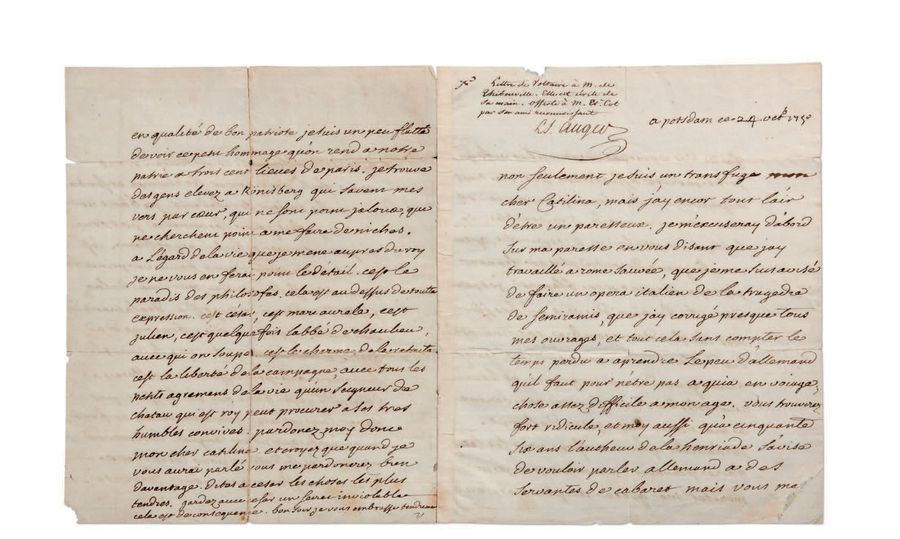 en qualité de bon patriote je suis un peu flatté
de voir ce petit hommage qu'on rend a notre
patrie a trois cent lieues de paris. je trouve
des gens elevez a Kònisberg qui savent mes
vers par cœur, qui ne sont point jaloux, qui
ne cherchent point a me faire de niches.
a l'égard de la vie que je mene aupres du roy
je ne vous en ferai point le détail. c'est le
paradis des philosofes. cela est au dessus de toutte
expression. c'est cesar, c'est marc aurele, c'est
julien, c'est quelque fois l'abbé de chaulieu,
avec qui on soupe. c'est le charme de la retraite
c'est la liberté de la campagne, avec tous les
petits agrements de la vie qu'un seigneur de
chatau qui est roy peut procurer a ses tres
humbles convives. pardonez moy donc
mon cher catilina et croyez que quand je
vous aurai parlé vous me pardonerez bon
davantage. dites a cesar les choses les plus
tendres. gardez avec cesar un secret inviolable
cela est de consequence. bon soir je vous embrasse tendrement
Lettre de Voltaire à M. de
Thibouville. Elle est écrite de
sa main. Offerte à M. Et. Cot
par son ami reconnaissant
L.S. Auger
a potsdam ce 24 octb 1750
non seulement je suis un transfuge mon
cher Catilina, mais j'ay encor tout l'air
d'etre un paresseux. je m'excuseray d'abord
sur ma paresse en vous disant que j'ay
travaillé a rome sauvée, que je me suis avisé
de faire un opera italien de la tragedie
de semiramis, que j'ay corrigé presque tous
mes ouvrages, et tout cela sans compter le
temps perdu a aprendre le peu d'allemand
qu'il faut pour n'etre pas a quia en voiage,
chose assez difficile a mon age. vous trouverez
fort ridicule, et moy aussi qu'a cinquante
six ans l'autheur de la henriade s'avise
de vouloir parler allemand a des
servantes de cabaret mais vous me